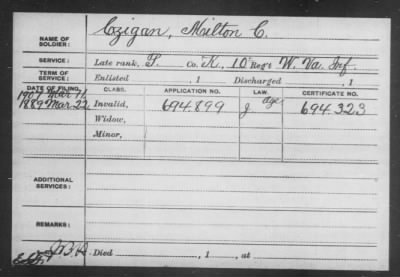 NAME OF SOLDIER: Czigan, Milton C.
SERVICE: Late rank, P. Co. K, 10 Reg't W. Va. Inf.
TERM OF SERVICE: Enlisted , 1 Discharged , 1
DATE OF FILING. CLASS. APPLICATION NO. LAW. CERTIFICATE NO.
1907 Mar 11
1889 Mar. 22 Invalid, 694.899 g age 694.323
Widow,
Minor,
ADDITIONAL SERVICES:
REMARKS:
Died , 1 , at